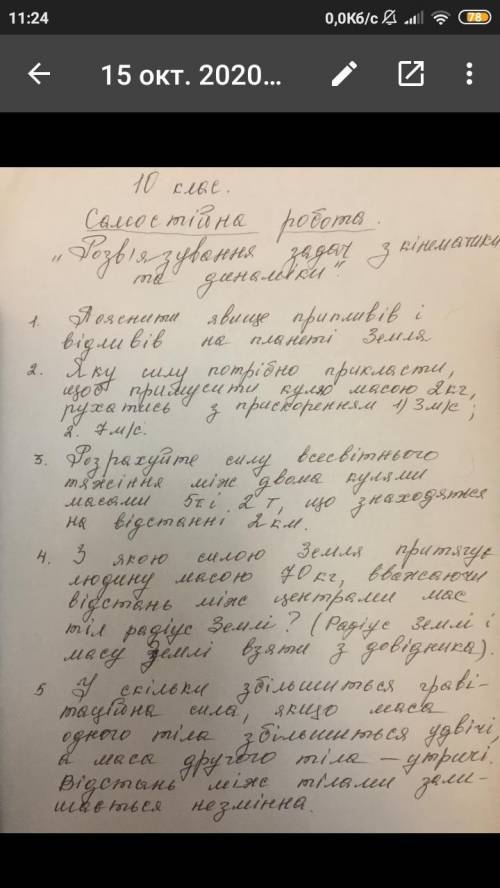 11:24
0,0Кб/с
78
15 окт. 2020...
10 клас.
Самостійна робота.
"Розв'язування задач з кінематики
та динаміки".
1. Пояснити явище припливів і
відливів на планеті Земля
2. Яку силу потрібно прикласти,
щоб примусити кулю масою 2кг,
рухатись з прискоренням 1) 3м/с;
2. 7м/с.
3. Розрахуйте силу всесвітнього
тяжіння між двома кулями
масами 5т і 2т, що знаходяться
на відстанні 2км.
4. З якою силою Земля притягує
людину масою 70кг, вважаючи
відстань між центрами мас
тіл радіус Землі? (Радіус Землі і
масу Землі взяти з довідника).
5 У скільки збільшиться граві-
таційна сила, якщо маса
одного тіла збільшиться удвічі,
а маса другого тіла – утричі.
Відстань між тілами зали-
шається незмінна.